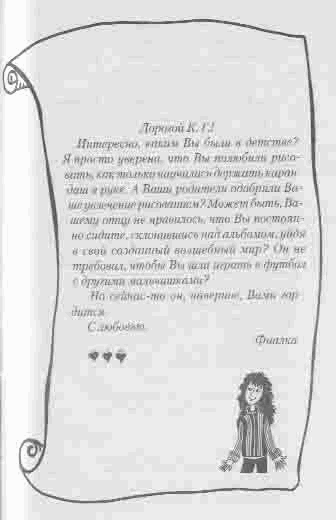 Дорогой К. Г.!
Интересно, каким Вы были в детстве?
Я просто уверена, что Вы полюбили рисо-
вать, как только научились держать каран-
даш в руке. А Ваши родители одобряли Ва-
ше увлечение рисованием? Может быть, Ва-
шему отцу не нравилось, что Вы постоян-
но сидите, склонившись над альбомом, уйдя
в свой созданный волшебный мир? Он не
требовал, чтобы Вы шли играть в футбол
с другими мальчишками?
Но сейчас-то он, наверное, Вами гор-
дится.
С любовью.
Фиалка